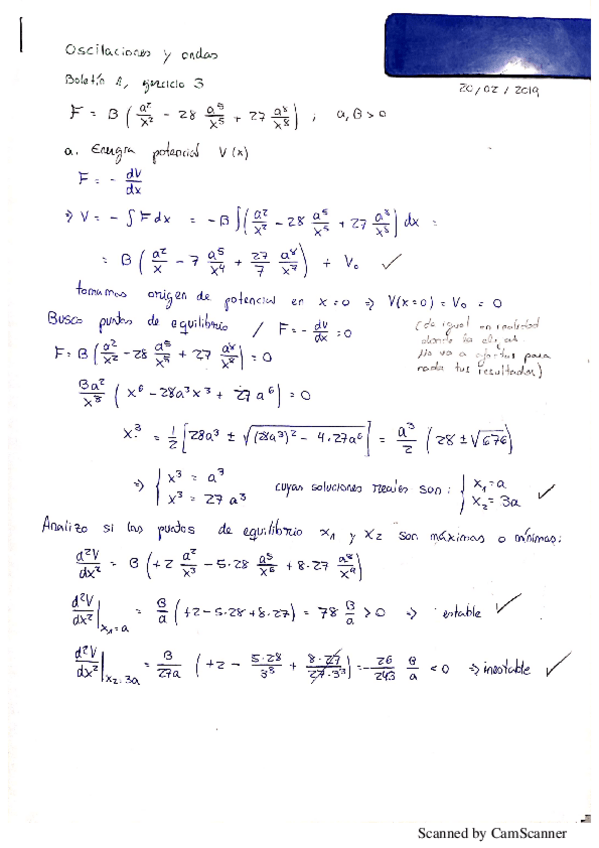 Oscilaciones y ondas
20/02/2019
Boletín 1, ejercicio 3
F = B ( a²/x² - 28 a⁵/x⁵ + 27 a⁸/x⁸ ) ; a, B > 0
a. Energía potencial V(x)
F = - dV/dx
⇒ V = - ∫ F dx = - B ∫ ( a²/x² - 28 a⁵/x⁵ + 27 a⁸/x⁸ ) dx =
= B ( a²/x - 7 a⁵/x⁴ + 27/7 a⁸/x⁷ ) + V₀ ✓
tomamos origen de potencial en x=0 ⇒ V(x=0) = V₀ = 0
(da igual en realidad
donde la elijas.
No va a afectar para
nada tus resultados)
Busco puntos de equilibrio / F = - dV/dx = 0
F = B ( a²/x² - 28 a⁵/x⁵ + 27 a⁸/x⁸ ) = 0
Ba²/x⁸ ( x⁶ - 28a³x³ + 27a⁶ ) = 0
x³ = 1/2 [ 28a³ ± √((28a³)² - 4·27a⁶) ] = a³/2 ( 28 ± √676 )
⇒ { x³ = a³
x³ = 27a³ cuyas soluciones reales son: { x₁ = a
x₂ = 3a ✓
Analizo si los puntos de equilibrio x₁ y x₂ son máximos o mínimos:
d²V/dx² = B ( +2 a²/x³ - 5·28 a⁵/x⁶ + 8·27 a⁸/x⁹ )
d²V/dx² |x₁=a = B/a ( +2 - 5·28 + 8·27 ) = 78 B/a > 0 ⇒ estable ✓
d²V/dx² |x₂=3a = B/27a ( +2 - 5·28/3³ + 8·27/27·3³ ) = - 26/243 B/a < 0 ⇒ inestable ✓
Scanned by CamScanner